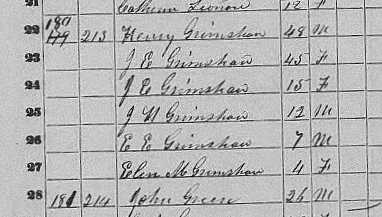 21 Calhoun 12 F
22 180 179 213 Henry Grimshaw 48 M
23 J E Grimshaw 45 F
24 J E Grimshaw 15 F
25 J H Grimshaw 12 M
26 E E Grimshaw 7 M
27 Elen M Grimshaw 4 F
28 181 214 John Green 26 M